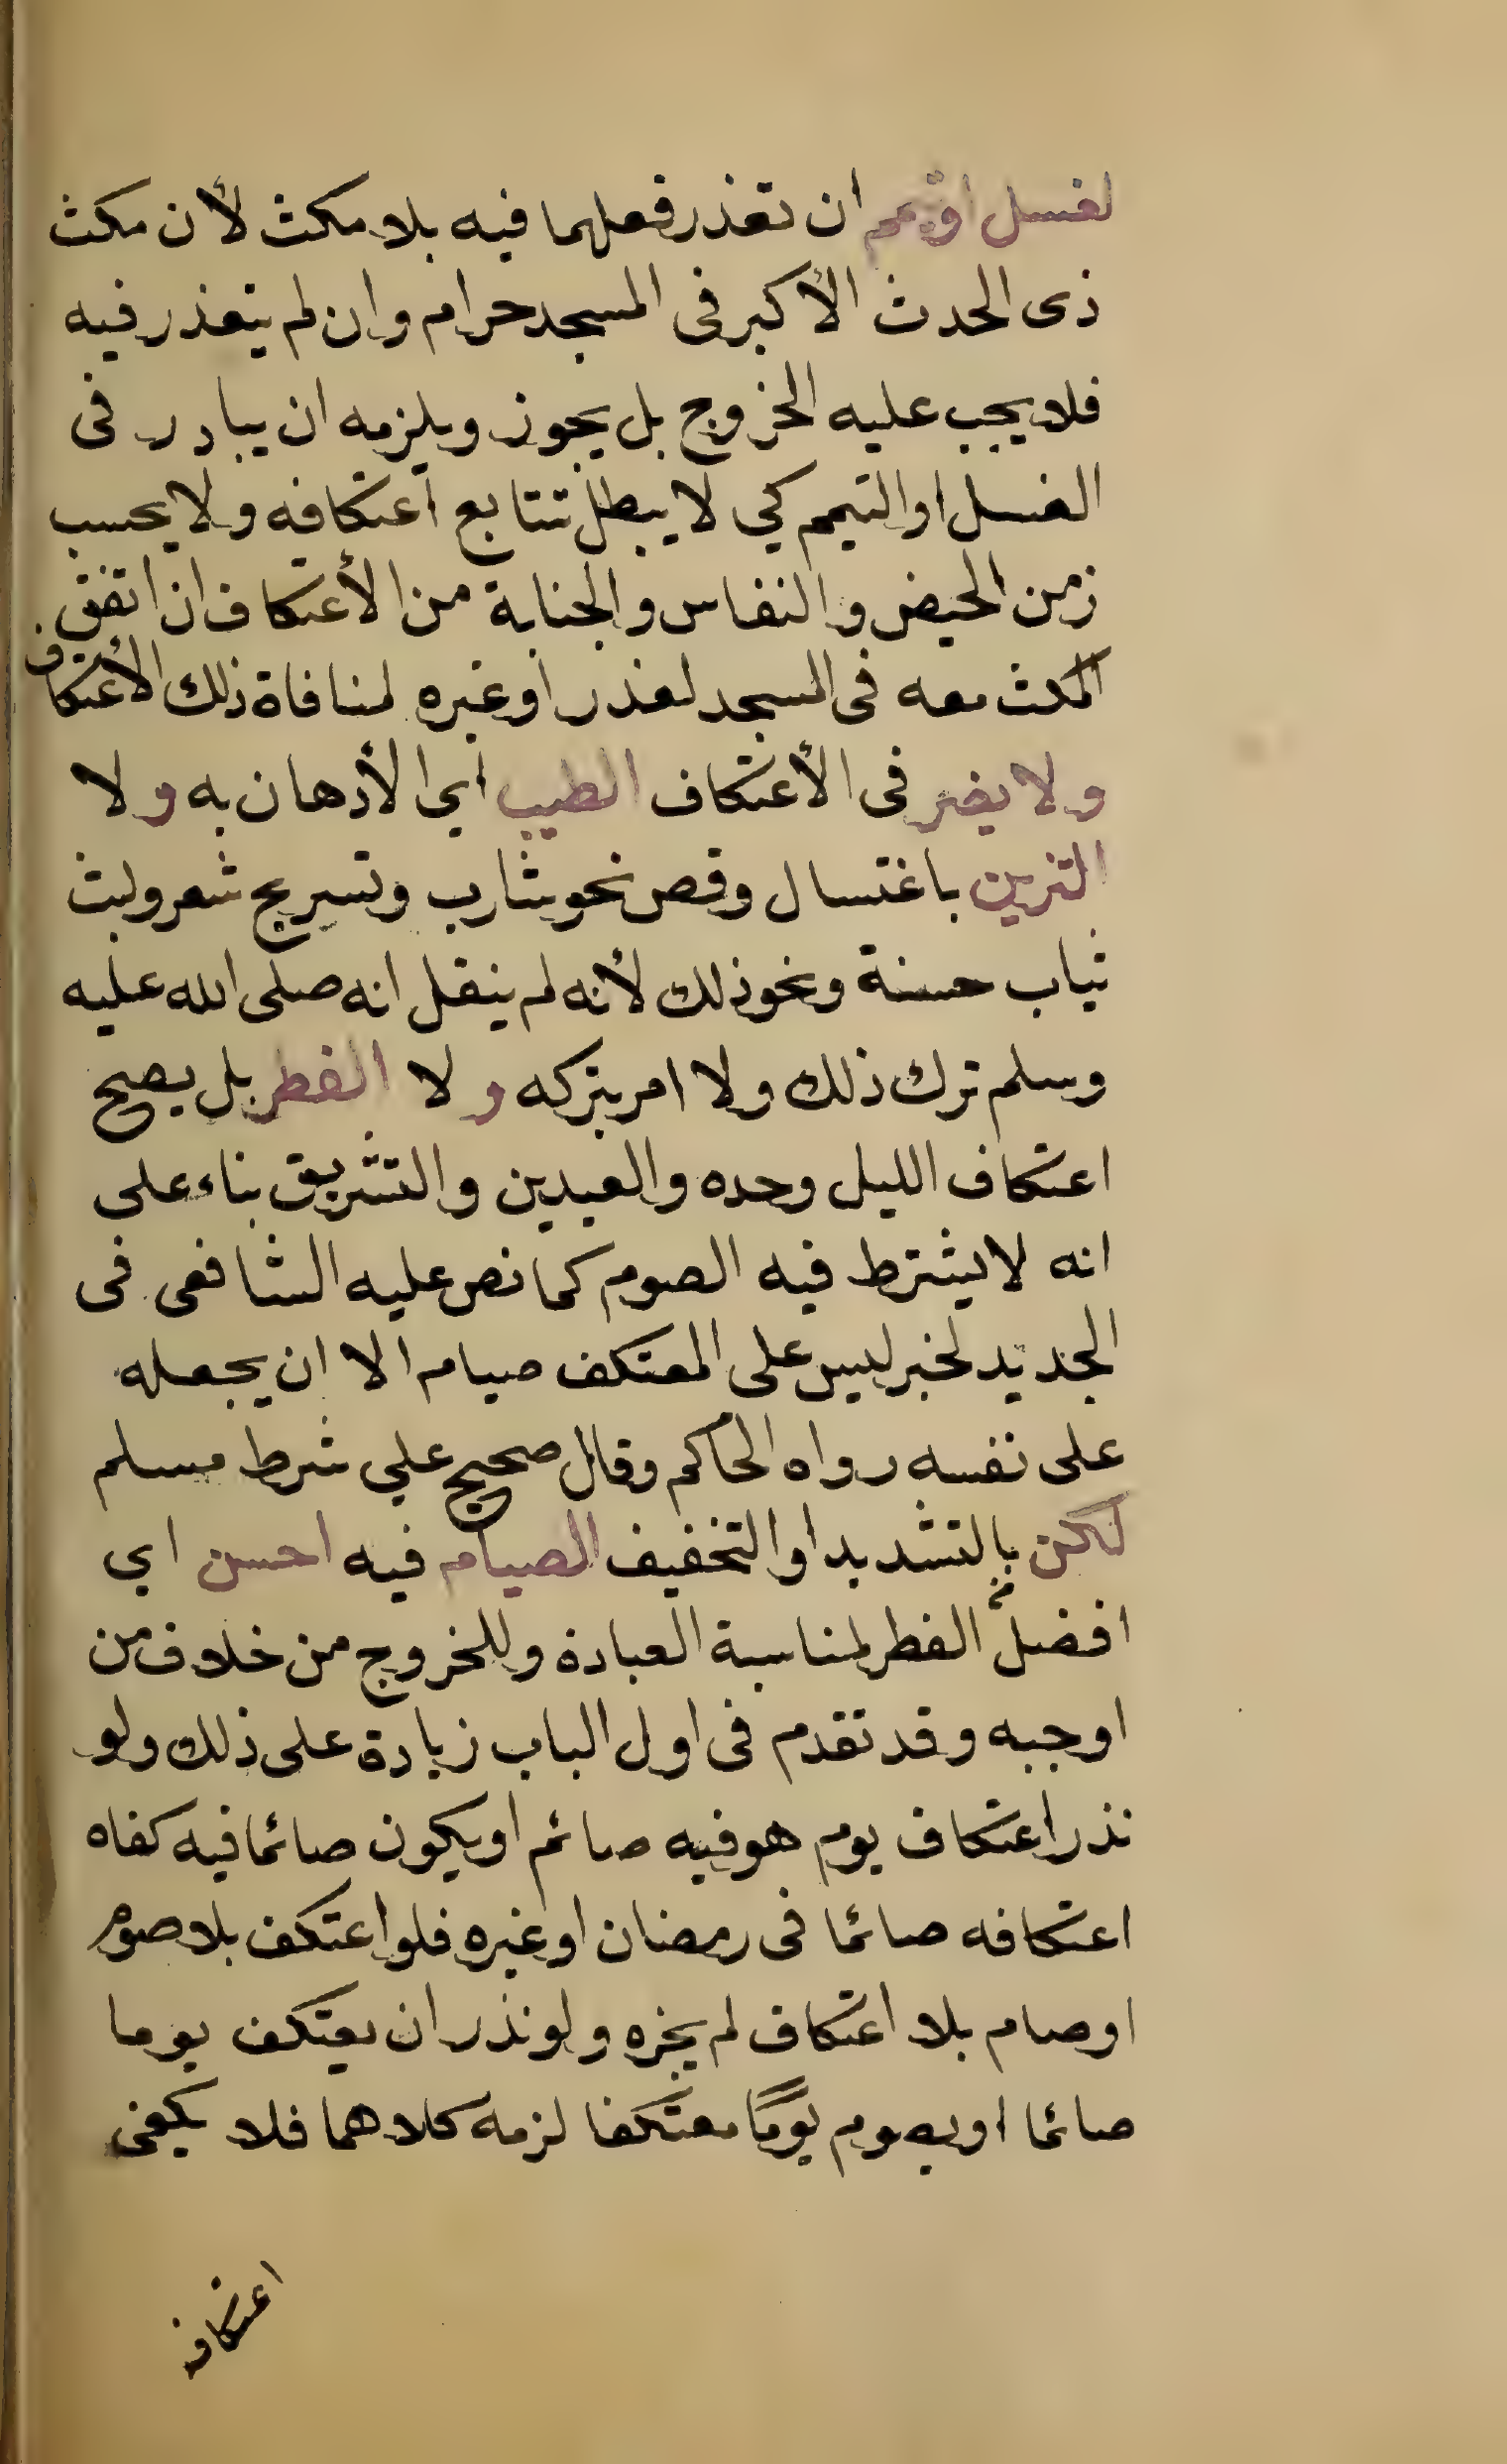 لغسل او تيمم ان تعذر فعلهما فيه بلا مكث لأن مكث
ذى الحدث الأكبر فى المسجد حرام وان لم يتعذر فيه
فلا يجب عليه الخروج بل يجوز ويلزمه ان يبادر فى
الغسل او التيمم كي لا يبطل تتابع اعتكافه ولا يحسب
زمن الحيض والنفاس والجنابة من الأعتكاف ان اتفق
المكث معه فى المسجد لعذر او غيره لمنافاة ذلك الأعتكاف
ولا يضر فى الأعتكاف الطيب اي الأدهان به ولا
التزين باغتسال وقص نحو شارب وتسريح شعر ولبث
ثياب حسنة ونحو ذلك لأنه لم ينقل انه صلى الله عليه
وسلم ترك ذلك ولا امر بتركه ولا الفطر بل يصح
اعتكاف الليل وحده والعيدين والتشريق بناء على
انه لا يشترط فيه الصوم كما نص عليه الشافعى فى
الجديد لخبر ليس على المعتكف صيام الا ان يجعله
على نفسه رواه الحاكم وقال صحيح علي شرط مسلم
لكن بالتشديد او التخفيف الصيام فيه احسن اي
افضل من الفطر لمناسبة العبادة وللخروج من خلاف من
اوجبه وقد تقدم فى اول الباب زيادة على ذلك ولو
نذر اعتكاف يوم هو فيه صائم او يكون صائما فيه كفاه
اعتكافه صائما فى رمضان او غيره فلو اعتكف بلا صوم
او صام بلا اعتكاف لم يجزه ولو نذر ان يعتكف يوما
صائما او يصوم يومًا معتكفا لزمه كلاهما فلا يكفى
اعتكافه